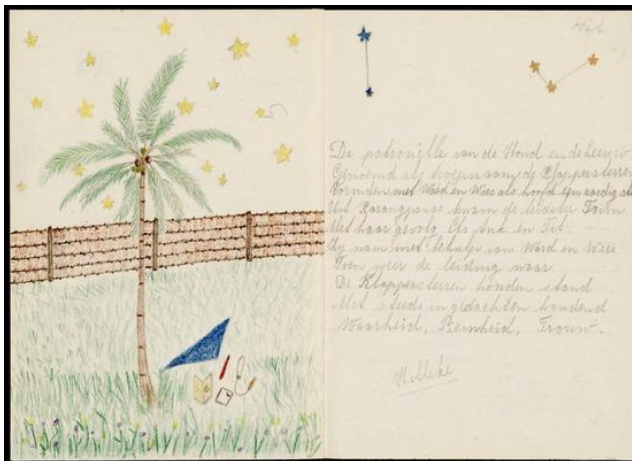 De patrouille van de Hond en de Leeuw
Genoemd als troepen van de Klappersterren
Vormden met Ward en Wies als hoofd een aardig
Uit Karangpanas kwam de leidster Toom
Met haar gevolg Ols And en Fit.
Zy nam met behulp van Ward en Wies
Toen weer de leiding waar
De Klappersterren houden stand
Met steeds in gedachten houdend
Waarheid, Reinheid, Trouw.
Hilleke